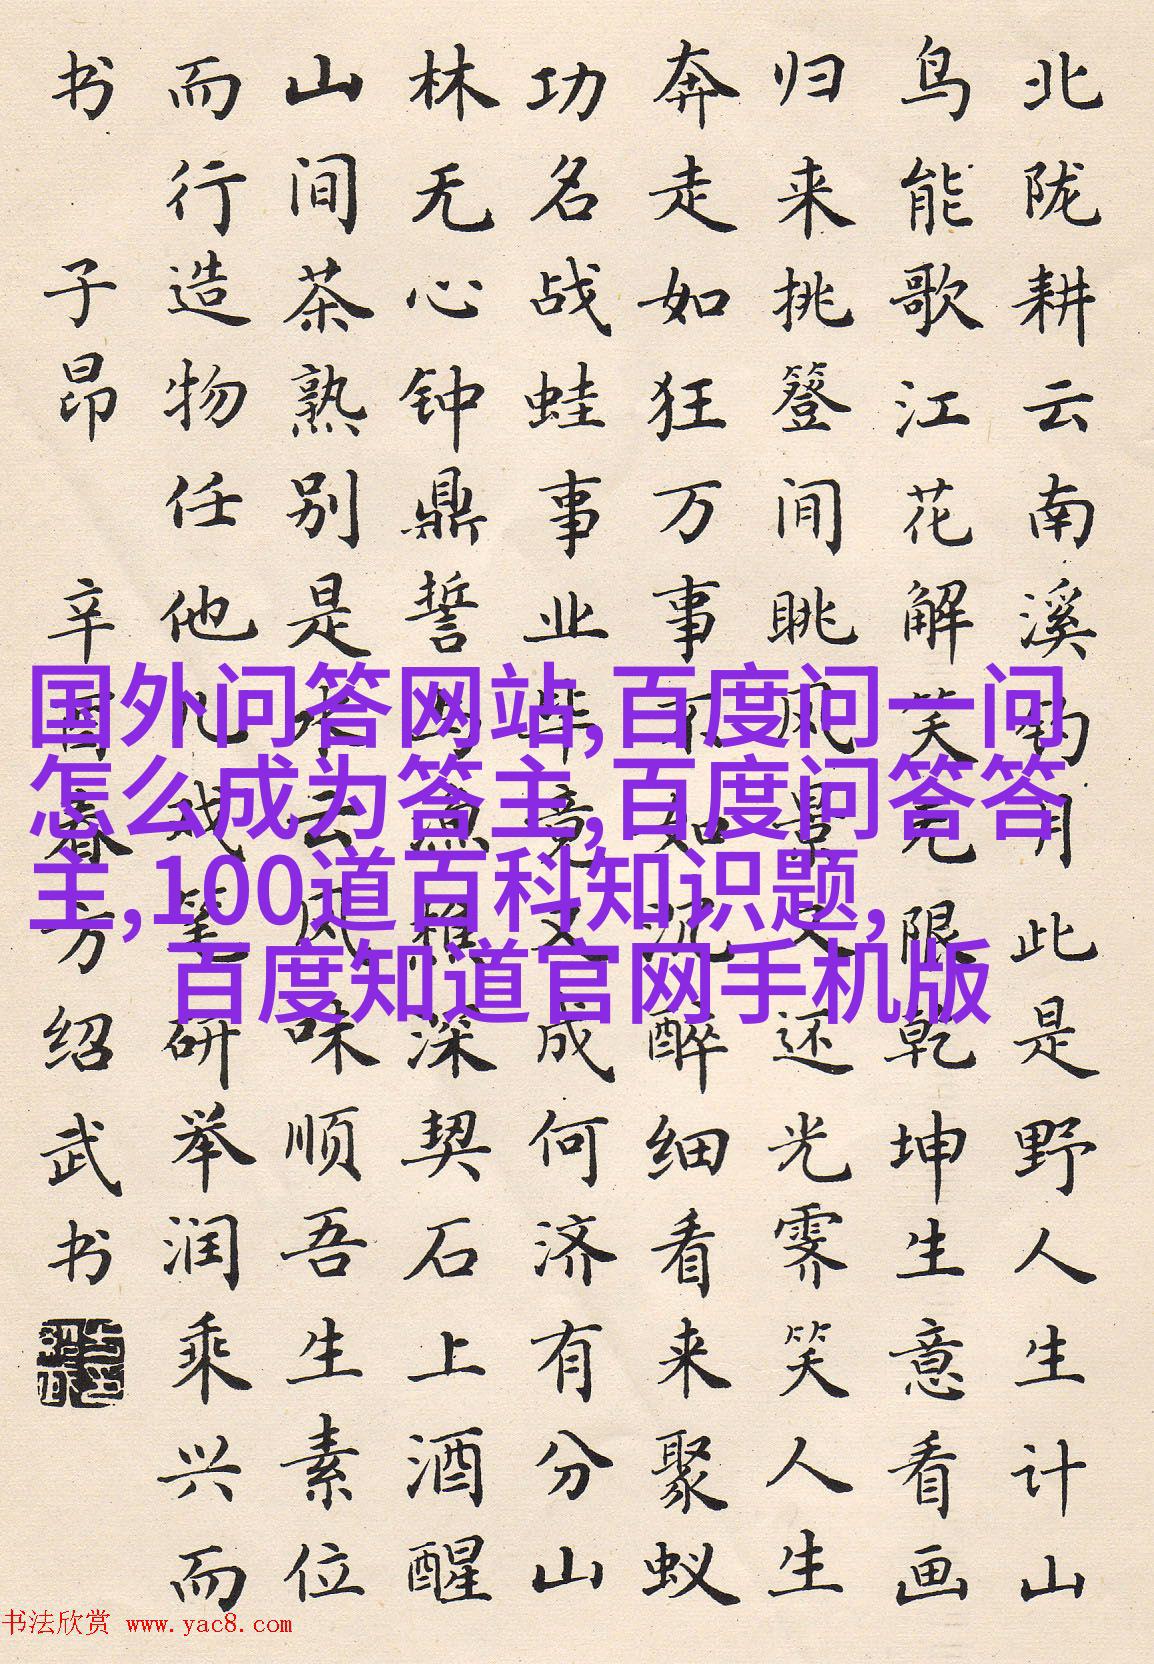 北陇耕云南溪钓月此是野人生计山
鸟能歌江花解笑无限乾坤生意看画
归来挑簦间眺风景又还光霁笑人生
奔走如狂万事不如沉醉细看来聚蚁
功名战蛙事业毕竟又成何济有分山
林无心钟鼎誓与渔樵深契石上酒醒
山间茶熟别是水云风味顺吾生素位
而行造物任他儿戏笔研举润乘兴而
书 子昂 辛酉春方绍武书
国外问答网站,百度问一问
怎么成为答主,百度问答答
主,100道百科知识题,
百度知道官网手机版
书法欣赏 www.yac8.com